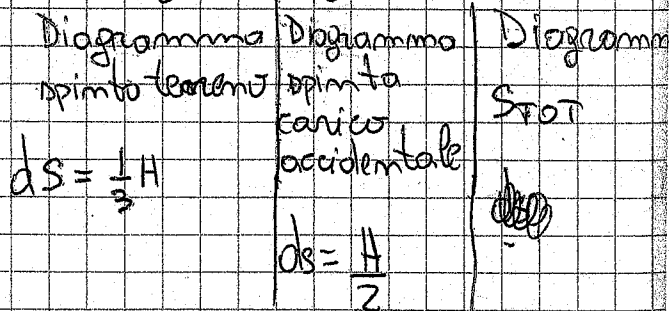 Diagramma
spinta terreno
dS = 1/3 H
Diagramma
spinta
carico
accidentale
ds = H/2
Diagramm
STOT